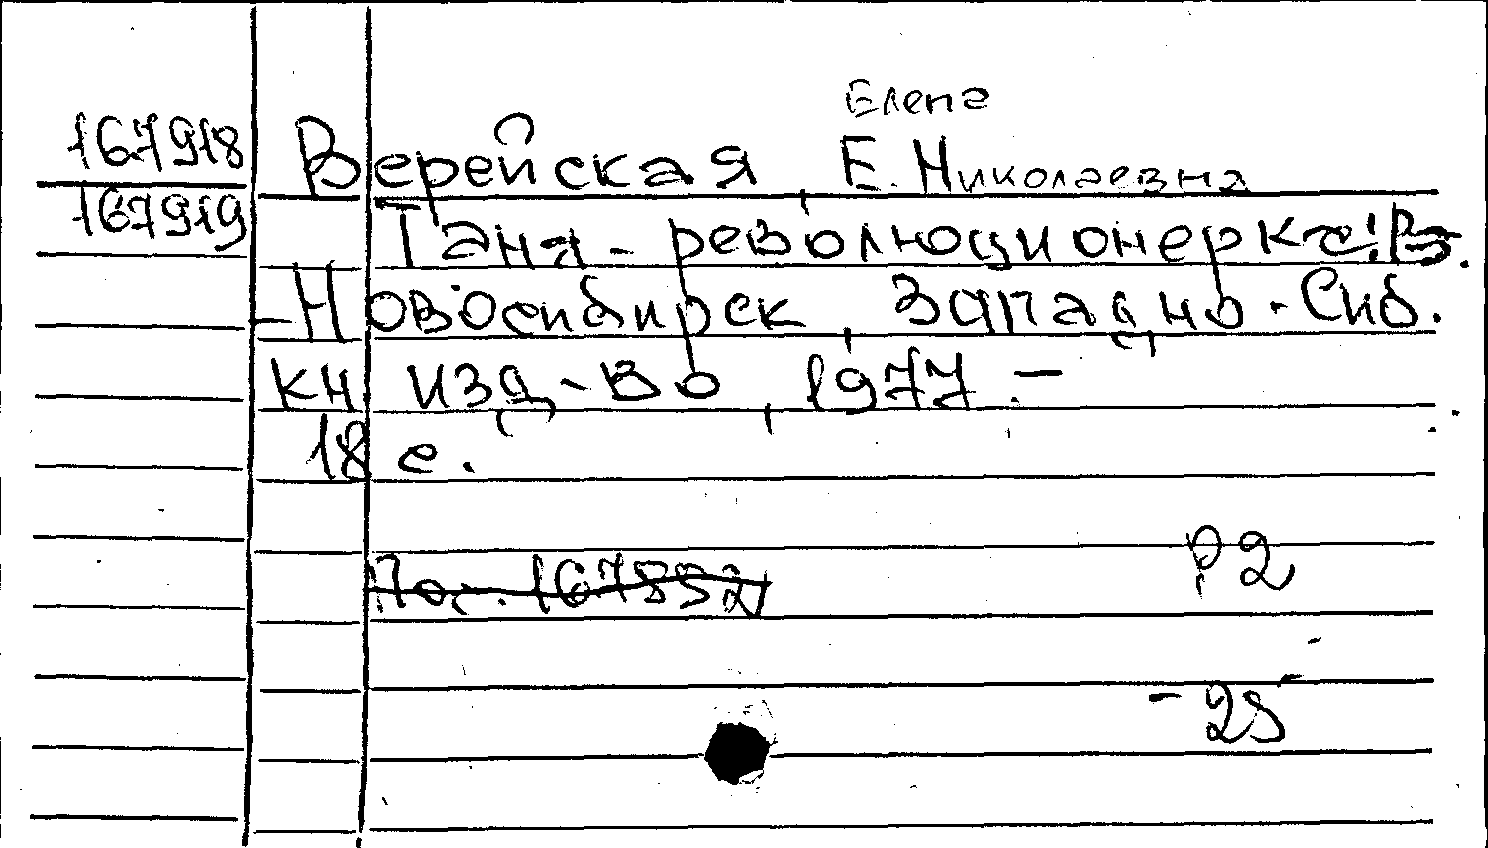 Елена
167918 Верейская, Е. Николаевна
167919 Таня-революционерка!
-Новосибирск, Западно-Сиб.
кн изд-во, 1977. -
18 с.
Р2
-25